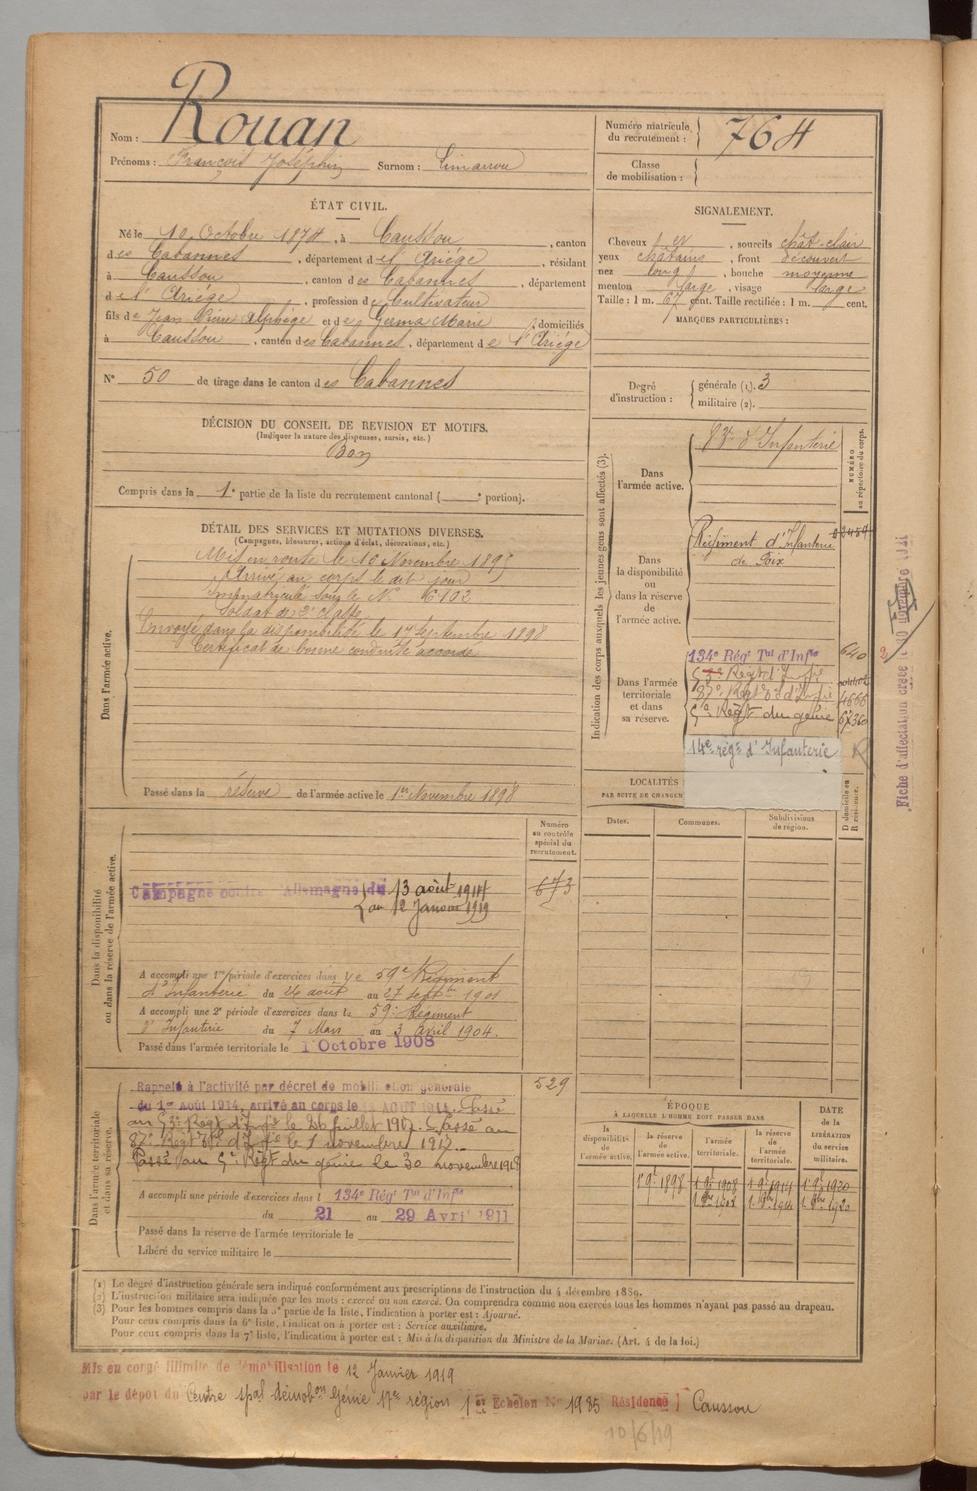 Nom : Rouan
Prénoms : François Joséphin Surnom : Limarrou
Numéro matricule du recrutement : 764
Classe de mobilisation :
ÉTAT CIVIL.
Né le 10 Octobre 1874, à Caussou, canton
des Cabannes, département de l'Ariége, résidant
à Caussou, canton des Cabannes, département
de l'Ariége, profession de Cultivateur
fils de Jean Pierre Alphége et de Germa Marie, domiciliés
à Caussou, canton des Cabannes, département de l'Ariége
N° 50 de tirage dans le canton des Cabannes
SIGNALEMENT.
Cheveux et, sourcils chât-clair
yeux châtains, front découvert
nez long, bouche moyenne
menton large, visage large
Taille : 1 m. 67 cent. Taille rectifiée : 1 m. cent.
MARQUES PARTICULIÈRES :
Degré d'instruction : générale (1). 3
militaire (2).
DÉCISION DU CONSEIL DE REVISION ET MOTIFS.
(Indiquer la nature des dispenses, sursis, etc.)
Bon
Compris dans la 1e partie de la liste du recrutement cantonal ( e portion).
DÉTAIL DES SERVICES ET MUTATIONS DIVERSES.
(Campagnes, blessures, actions d'éclat, décorations, etc.)
Dans l'armée active.
Mis en route le 10 Novembre 1895
Arrivé au corps le dit jour
immatriculé sous le N° 6192
Soldat de 2e classe
Envoyé dans la disponibilité le 1er Septembre 1898
Certificat de bonne conduite accordé
Passé dans la réserve de l'armée active le 1er Novembre 1898
Indication des corps auxquels les jeunes gens sont affectés (3).
NUMÉRO au répertoire du corps.
Dans l'armée active.
d'Infanterie
Dans la disponibilité ou dans la réserve de l'armée active.
Régiment d'Infanterie
de Foix
Dans l'armée territoriale et dans sa réserve.
134e Régt Tal d'Infie 640
53e Régt d'Infie
4666
5e Régt du génie
14e rég. d'Infanterie
Fiche d'affectation créée le 10 novembre
LOCALITÉS
PAR SUITE DE CHANGEM
Dates. Communes. Subdivisions de région.
D domicile ou R résidence.
Dans la disponibilité ou dans la réserve de l'armée active.
Numéro au contrôle spécial du recrutement.
Campagne contre l'Allemagne du 13 août 1914
au 12 Janvier 1919
673
A accompli une 1re période d'exercices dans le 59e Régiment
d'Infanterie du 26 août au 27 Septbre 1901
A accompli une 2e période d'exercices dans le 59e Régiment
d'Infanterie du 7 Mars au 3 Avril 1904.
Passé dans l'armée territoriale le 1 Octobre 1908
Dans l'armée territoriale et dans sa réserve.
Rappelé à l'activité par décret de mobilisation générale
du 1er Août 1914, arrivé au corps le AOUT 1914. Passé
au 53e Régt d'Infie le 26 Juillet 1917. Passé au
le 1 novembre 1917.
Passé au 5e Régt du génie le 30 novembre 1918
529
A accompli une période d'exercices dans l 134e Régt Tal d'Infie
du 21 au 29 Avril 1911
Passé dans la réserve de l'armée territoriale le
Libéré du service militaire le
ÉPOQUE
À LAQUELLE L'HOMME DOIT PASSER DANS
la disponibilité de l'armée active. la réserve de l'armée active. l'armée territoriale. la réserve de l'armée territoriale.
DATE de la LIBÉRATION du service militaire.
1 9bre 1898 1 9bre 1908 1 9bre 1914 1 9bre 1920
(1) Le degré d'instruction générale sera indiqué conformément aux prescriptions de l'instruction du 4 décembre 1889.
(2) L'instruction militaire sera indiquée par les mots : exercé ou non exercé. On comprendra comme non exercés tous les hommes n'ayant pas passé au drapeau.
(3) Pour les hommes compris dans la 5e partie de la liste, l'indication à porter est : Ajourné.
Pour ceux compris dans la 6e liste, l'indication à porter est : Service auxiliaire.
Pour ceux compris dans la 7e liste, l'indication à porter est : Mis à la disposition du Ministre de la Marine. (Art. 4 de la loi.)
Mis en congé illimité de démobilisation le 12 Janvier 1919
par le dépôt du Centre spal démobon Génie 17e région 1er Echelon No 1985 Résidence Caussou
10/6/19